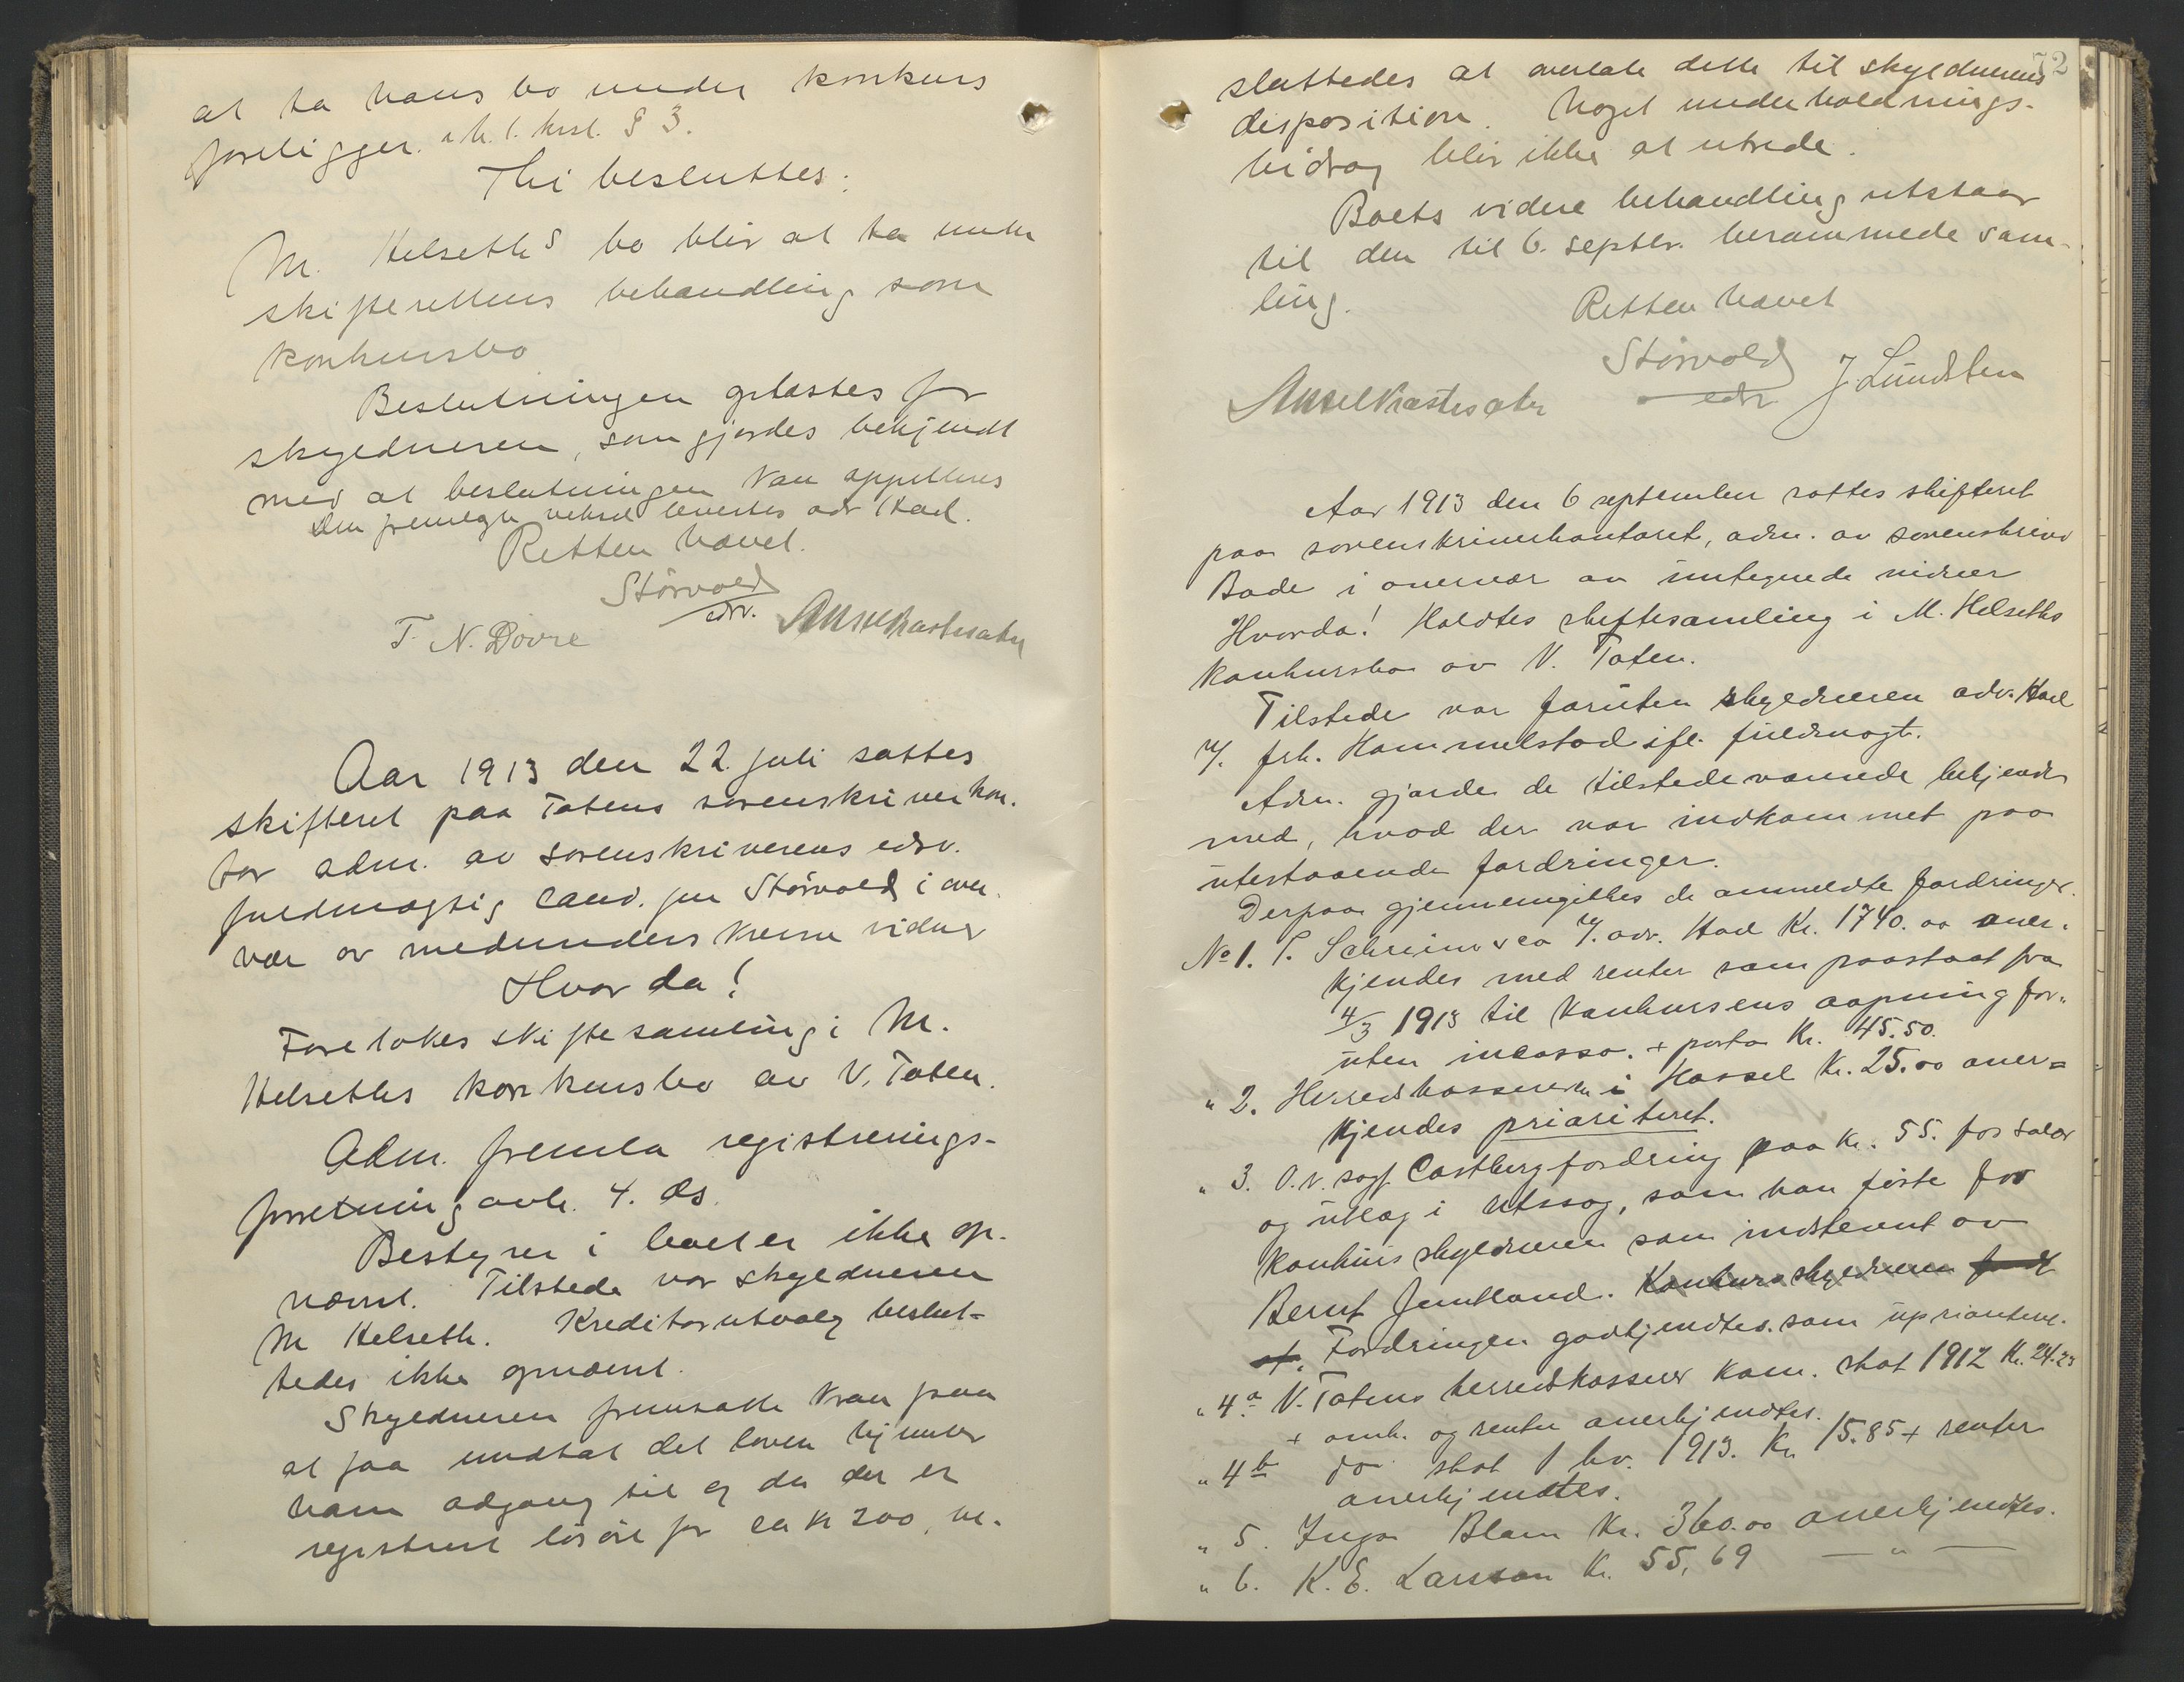 at ta hans bo under konkurs
foreligger. k. l. § 3.
Thi besluttes:
M. Helseths bo blir at ta under
skifterettens behandling som
konkursbo
Beslutningen oplæstes for
skyldneren, som gjordes bekjendt
med at beslutningen kan appelleres
Den fremlagte veksel levertes adv Stad.
Retten hævet.
Störvold
edsv. Aksel
T. N. Dovre
Aar 1913 den 22. juli sattes
skifteret paa Totens sorenskriverkon-
tor adm. av sorenskriverens edsv.
fuldmægtig cand. jur Störvold i over-
vær av medunderskrevne vidner
Hvorda!
Foretokes skiftesamling i M.
Helseths konkursbo av V. Toten.
Adm. fremla registrerings-
forretning avh. 4. ds.
Bestyrer i boet er ikke op-
nævnt. Tilstede var skyldneren
M Helseth. Kreditorutvalg beslut-
tedes ikke opnævnt.
Skyldneren fremsatte krav paa
at faa undtat det loven hjemler
ham adgang til og da der er
registrert lösöre for ca kr 200, be-
72
sluttedes at overlate dette til skyldnerens
disposition. Noget underholdnings-
bidrag blir ikke at utrede.
Boets videre behandling utstaar
til den til 6. septbr. berammede sam-
ling.
Retten hævet
Störvold
edsv J. Lundsten
Aksel
Aar 1913 den 6 september sattes skifteret
paa sorenskriverkontoret, adm. av sorenskriver
Bade i overvær av undtegnede vidner
Hvorda! Holdtes skiftesamling i M. Helseths
konkursbo av V. Toten.
Tilstede var foruten skyldneren adv. Stad
v/. frk. Hammelstad ifl. fuldmagt.
Adm. gjorde de tilstedeværende bekjendt
med, hvad der var indkommet paa
utestaaende fordringer.
Derpaa gjennemgikkes de anmeldte fordringer.
No 1. P. Schreiner & co v/. adv. Stad Kr. 1740.00 aner-
kjendes med renter som paastaat fra
4/3 1913 til konkursens aapning for-
uten incasso. + porto Kr. 45.50.
" 2. Herredskassereren i Hassel Kr. 25.00 aner=
kjendes prioritert.
" 3. O.r.sagf. Castberg fordring paa kr. 55. for salær
og utlæg i utssag, som han förte for
konkursskyldneren som indstevnt av
Bernt Jemtland. Konkursskyldneren
Fordringen godkjendtes som uprioritert.
" 4a V. Totens herredskasserer kom. skat 1912 Kr. 24.23
+ omk. og renter anerkjendtes.
" 4b do skat 1 hv. 1913. Kr. 15.85 + renter
anerkjendtes.
" 5. Inga Blam Kr. 360.00 anerkjendtes.
" 6. K. E. Larsson Kr. 55,69 — " —